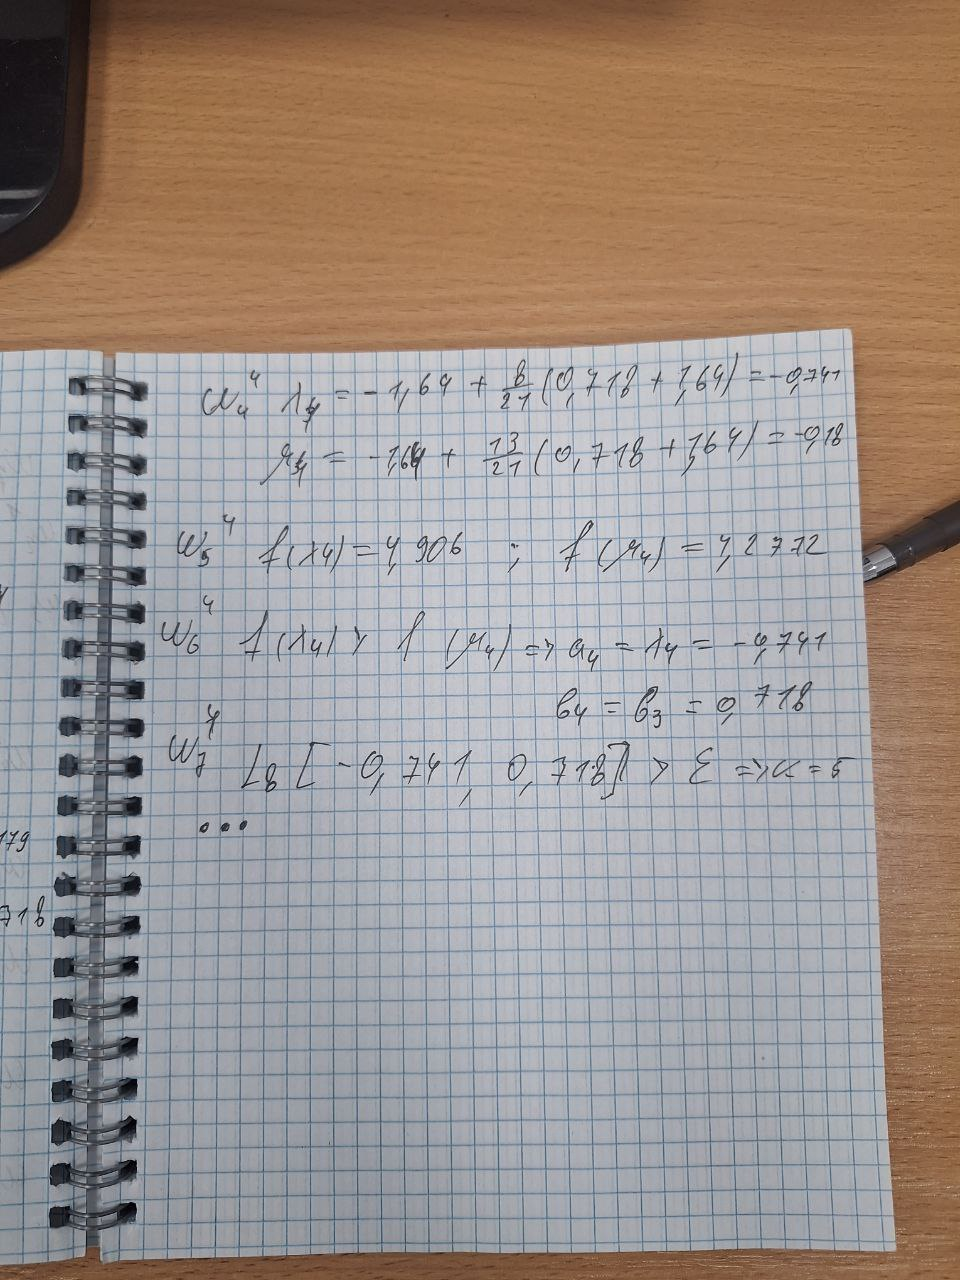 ш₄⁴ λ₄ = -1,64 + 8/21 (0,718 + 1,64) = -0,741
μ₄ = -1,64 + 13/21 (0,718 + 1,64) = -0,18
ш₅⁴ f(λ₄) = 4,906 ; f(μ₄) = 4,2772
ш₆⁴ f(λ₄) > f(μ₄) => a₄ = λ₄ = -0,741
b₄ = b₃ = 0,718
ш₇⁴ L₈ [-0,741, 0,718] > ε => k = 5
...
179
718